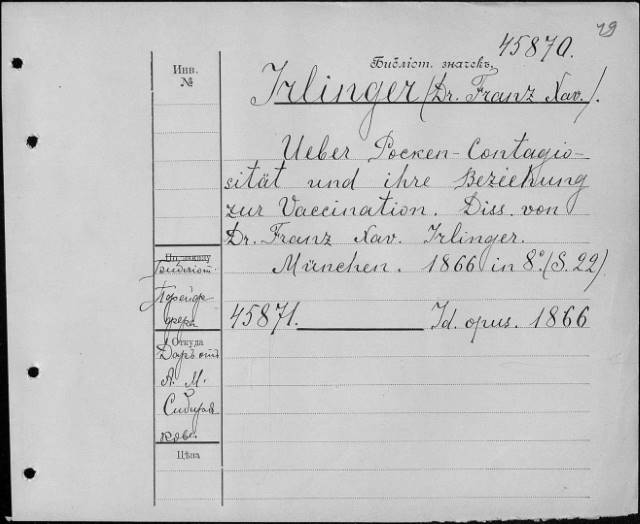 79
45870.
Библіот. значекъ.
Инв.
№
Irlinger (Dr. Franz Xav.).
Ueber Pocken-Contagio-
sität und ihre Beziehung
zur Vaccination. Diss. von
Dr. Franz Xav. Irlinger.
По заказу
Библіот.
München. 1866 in 8°. (S. 22).
45871. Id. opus. 1866
Откуда
Даръ отъ
А. М.
Сибиряк
Цѣна